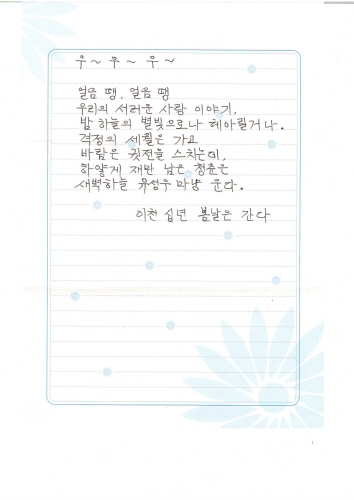 우~ 우~ 우~
얼음 땡. 얼음 땡
우리의 서러운 사랑 이야기,
밤 하늘의 별빛으로나 헤아릴거나.
격정의 세월은 가고
바람은 귓전을 스치는데,
하얗게 재만 남은 청춘은
새벽하늘 유성우 마냥 운다.
이천 십년 봄날은 간다